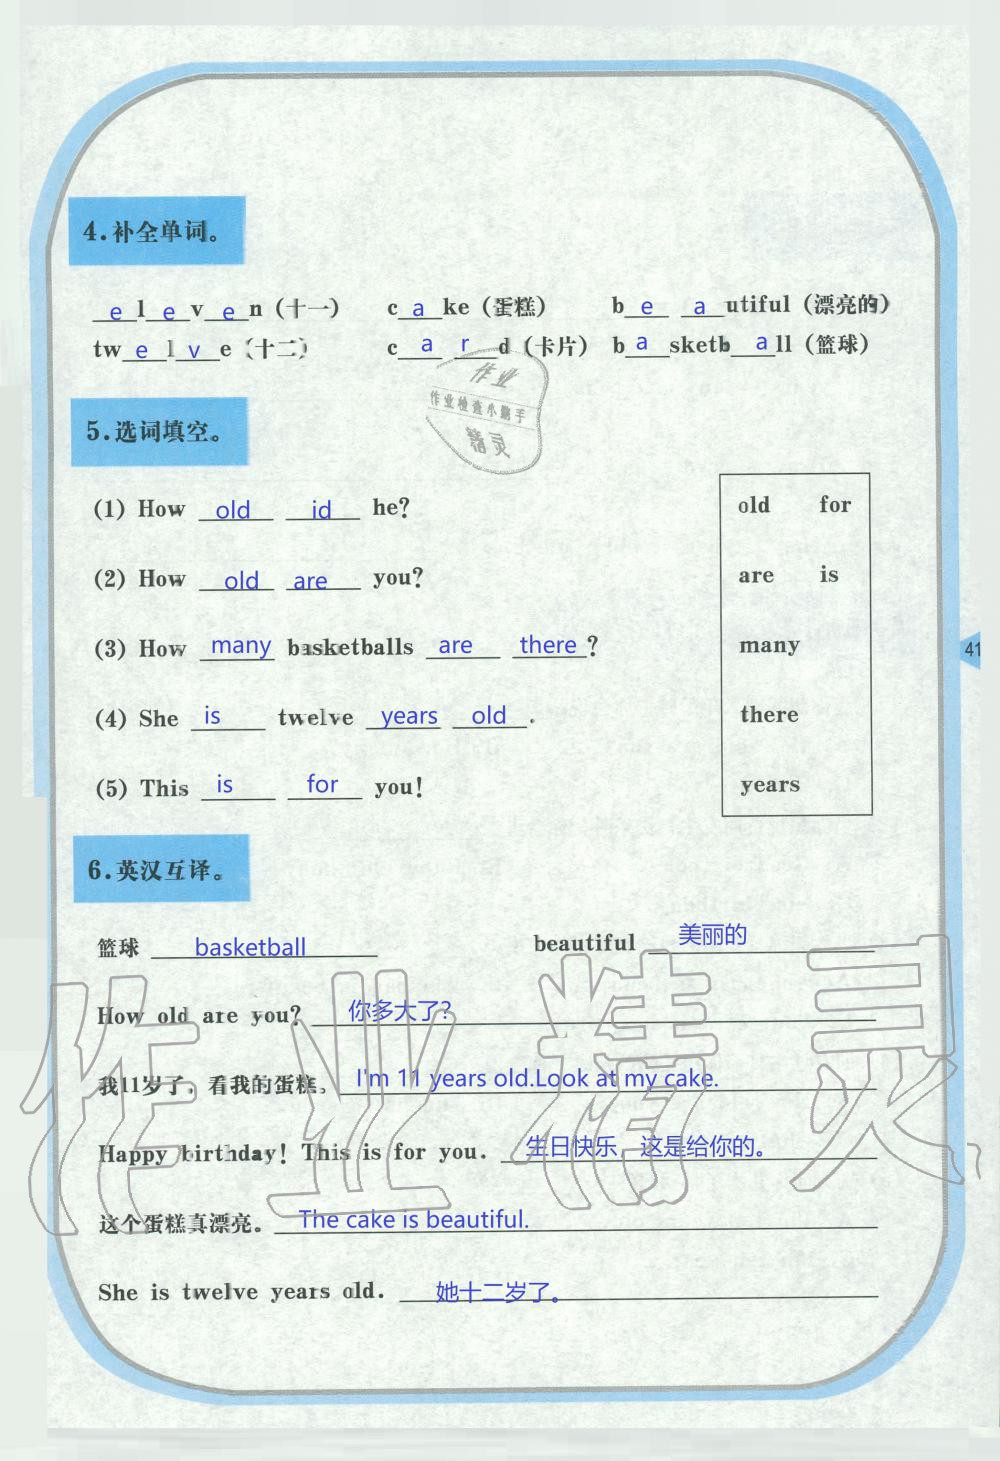 4.补全单词。
__e__l__e__v__e__n（十一） c__a__ke（蛋糕） b__e__ __a__utiful（漂亮的）
tw__e__l__v__e（十二） c__a__ __r__d（卡片） b__a__sketb__a__ll（篮球）
作业
作业检查小助手
精灵
5.选词填空。
(1) How old id he?
(2) How old are you?
(3) How many basketballs are there?
(4) She is twelve years old.
(5) This is for you!
old for
are is
many
there
years
41
6.英汉互译。
篮球 basketball beautiful 美丽的
How old are you? 你多大了?
我11岁了，看我的蛋糕。 I'm 11 years old.Look at my cake.
Happy birthday! This is for you. 生日快乐，这是给你的。
这个蛋糕真漂亮。 The cake is beautiful.
She is twelve years old. 她十二岁了。
作业精灵